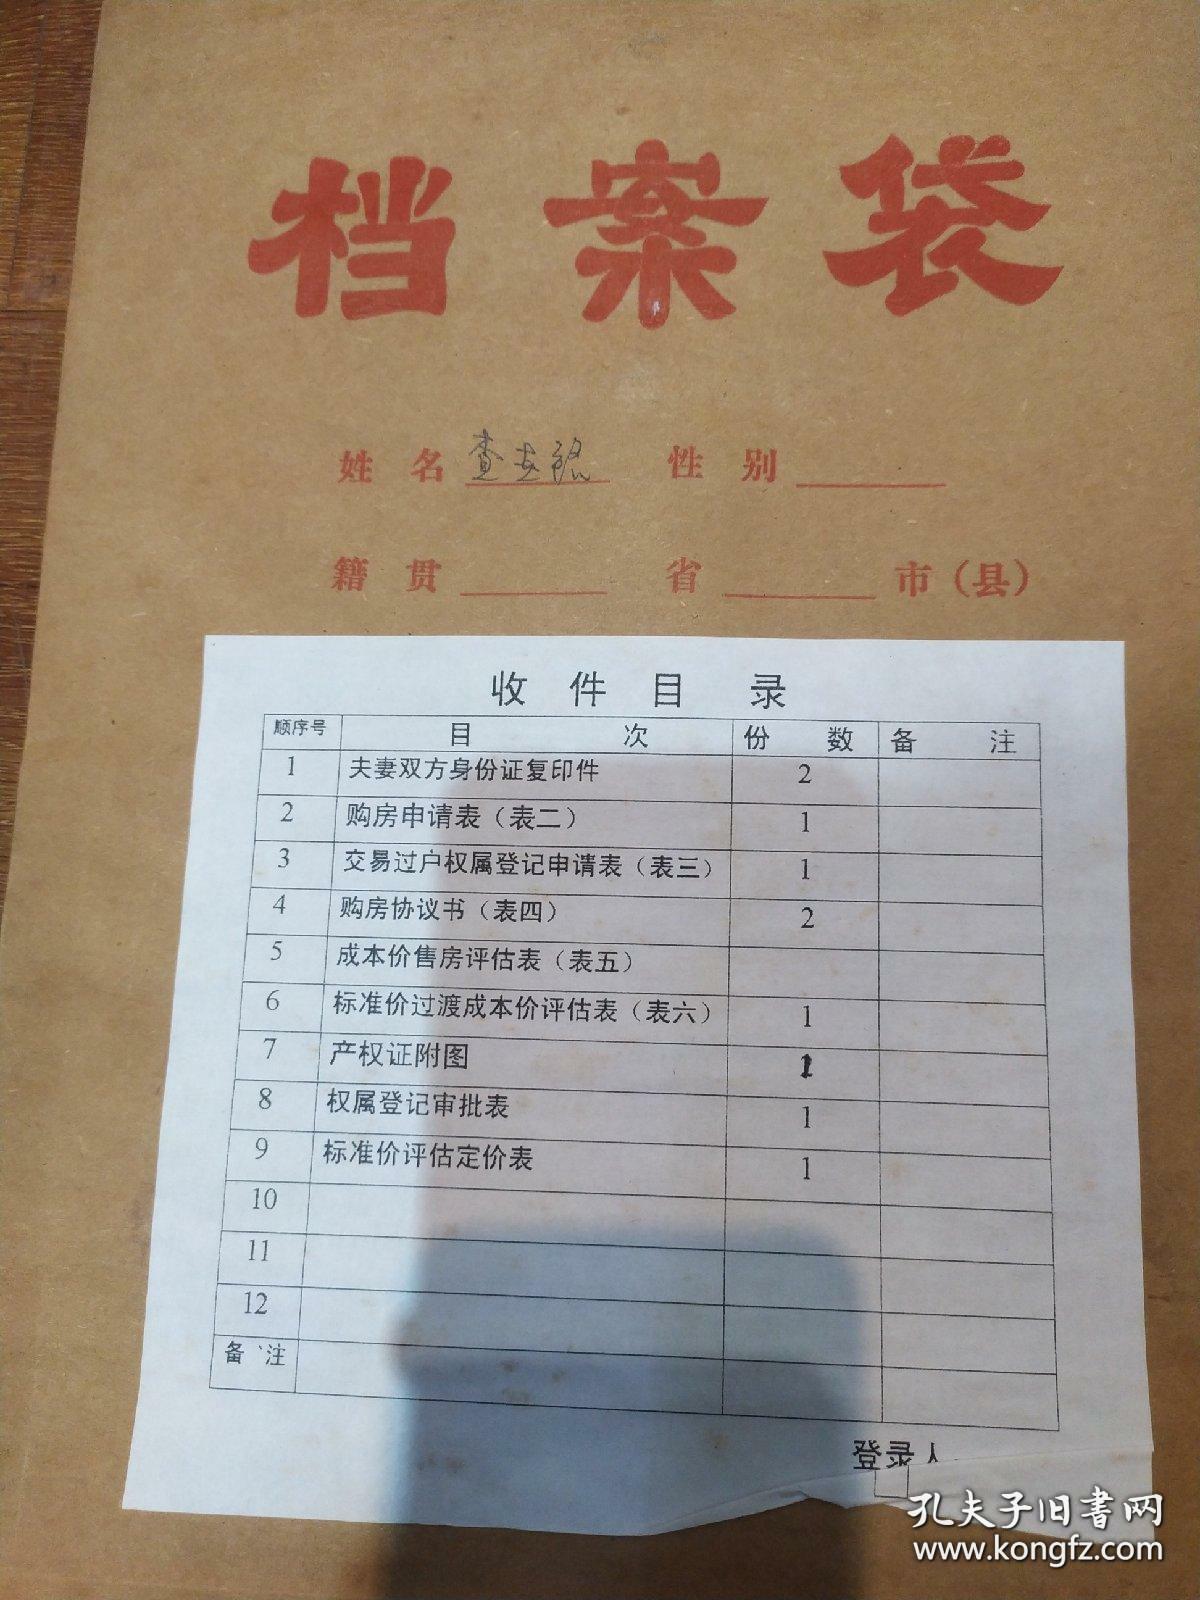 档案袋
姓名 查 性别
籍贯 省 市(县)
收件目录
顺序号 目次 份数 备注
1 夫妻双方身份证复印件 2
2 购房申请表(表二) 1
3 交易过户权属登记申请表(表三) 1
4 购房协议书(表四) 2
5 成本价售房评估表(表五)
6 标准价过渡成本价评估表(表六) 1
7 产权证附图 1
8 权属登记审批表 1
9 标准价评估定价表 1
10
11
12
备注
登录人
孔夫子旧书网
www.kongfz.com